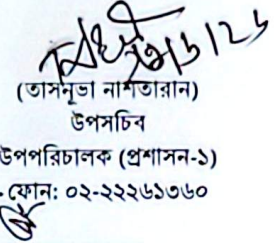 (তাসনুভা নাশতারান)
উপসচিব
উপপরিচালক (প্রশাসন-১)
ফোন: ০২-২২২২৬১৩৬০